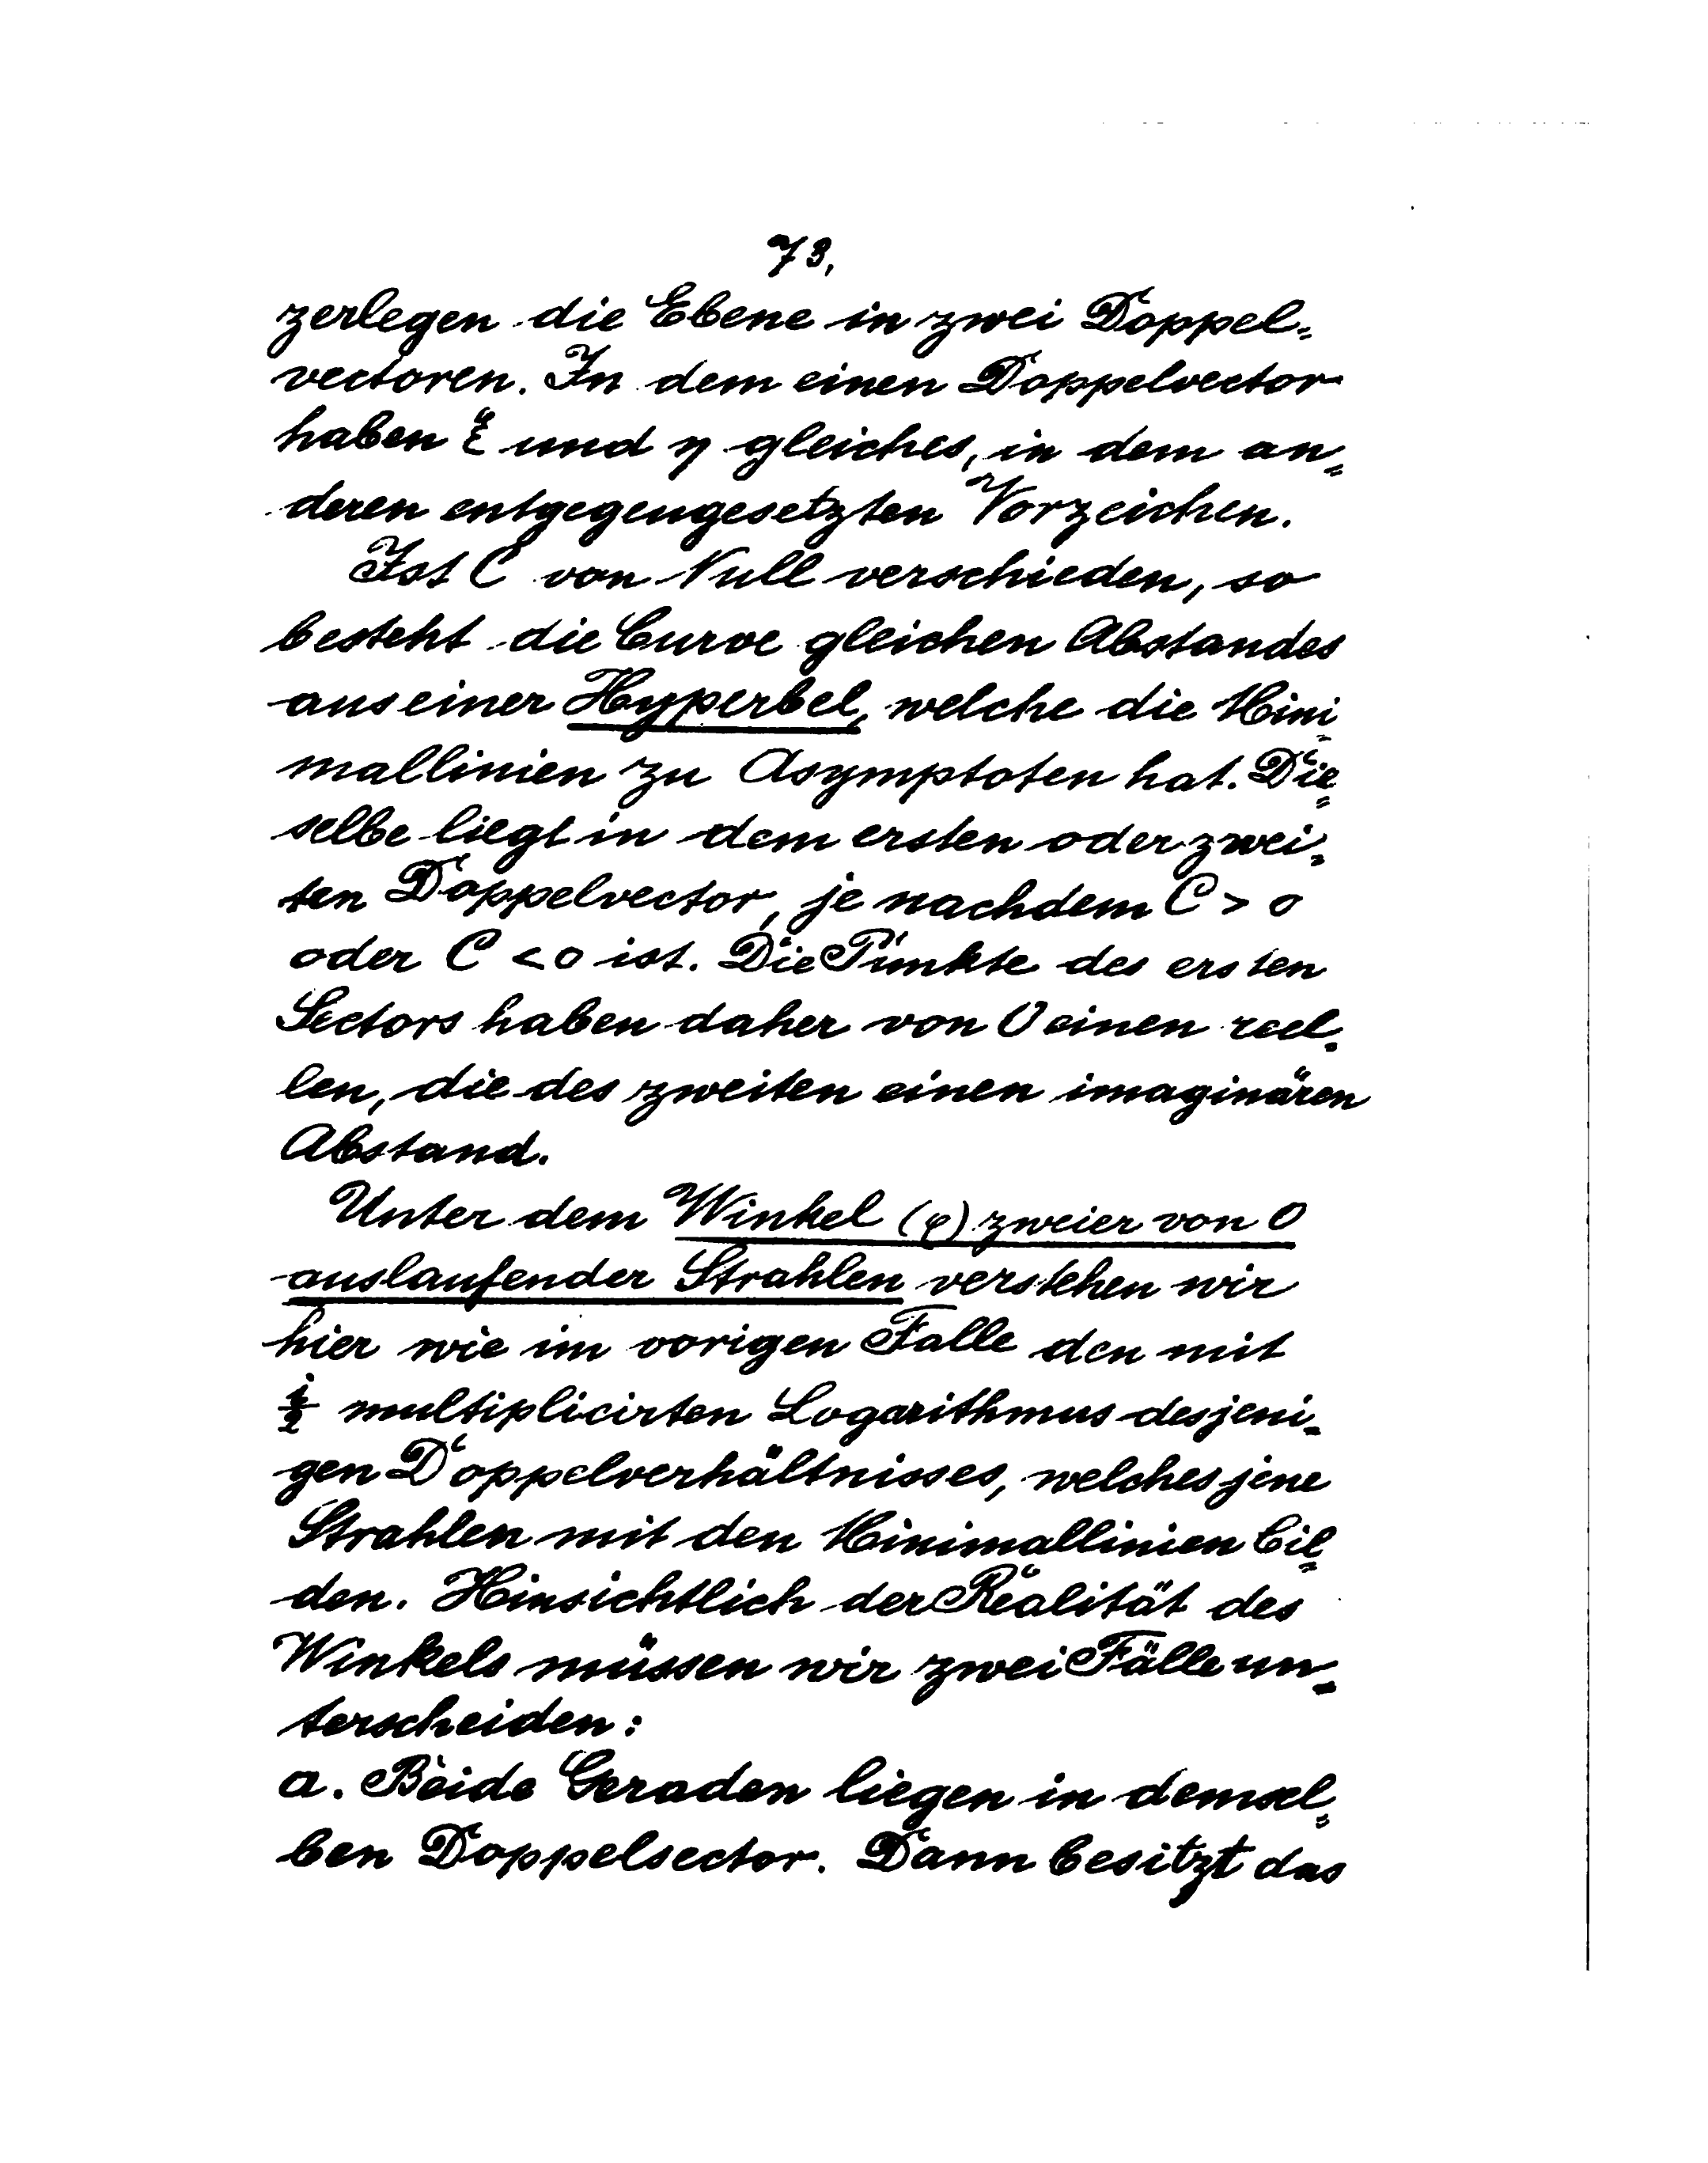 73.
zerlegen die Ebene in zwei Doppel=
vectoren. In dem einen Doppelvector
haben ξ und η gleiches, in dem an=
deren entgegengesetzten Vorzeichen.
Ist C von Null verschieden, so
besteht die Curve gleichen Abstandes
aus einer Hyperbel, welche die Mini=
mallinien zu Asymptoten hat. Die=
selbe liegt in dem ersten oder zwei=
ten Doppelvector, je nachdem C > o
oder C < o ist. Die Punkte des ersten
Sectors haben daher von O einen reel=
len, die des zweiten einen imaginären
Abstand.
Unter dem Winkel (φ) zweier von O
auslaufender Strahlen verstehen wir
hier wie im vorigen Falle den mit
i/2 multiplicirten Logarithmus desjeni=
gen Doppelverhältnisses, welches jene
Strahlen mit den Minimallinien bil=
den. Hinsichtlich der Realität des
Winkels müssen wir zwei Fälle un=
terscheiden:
a. Beide Geraden liegen in demsel=
ben Doppelsector. Dann besitzt das